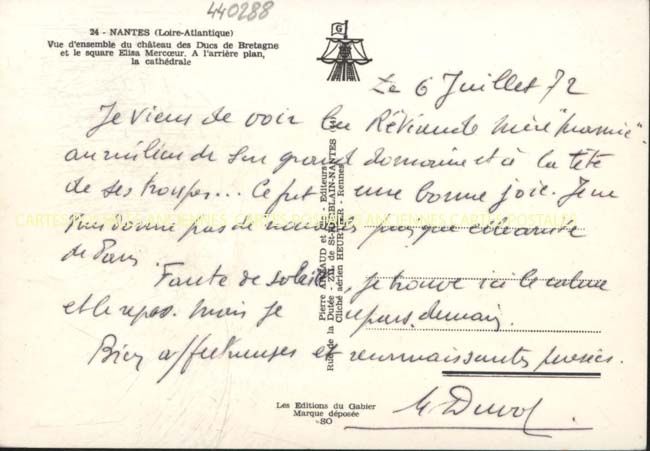 440288
24 - NANTES (Loire-Atlantique)
Vue d'ensemble du château des Ducs de Bretagne
et le square Elisa Mercœur. A l'arrière plan,
la cathédrale
G
Le 6 Juillet 72
Je viens de voir la Révérende mère "mamie"
au milieu de son grand domaine et à la tête
de ses troupes... Ce fut une bonne joie. Je ne
vous donne pas de nouvelles puisque
de Paris
Faute de soleil, je trouve ici le calme
et le repos. mais je repars demain.
Bien affectueuses et reconnaissantes pensées.
Pierre ARTAUD et Cie - Editeurs
Rue de la Dutée - ZIL de St-HERBLAIN-NANTES
Cliché aérien HEURTIER - Rennes
CARTES POSTALES ANCIENNES CARTES POSTALES ANCIENNES CARTES POSTALES
Les Editions du Gabier
Marque déposée
-SO